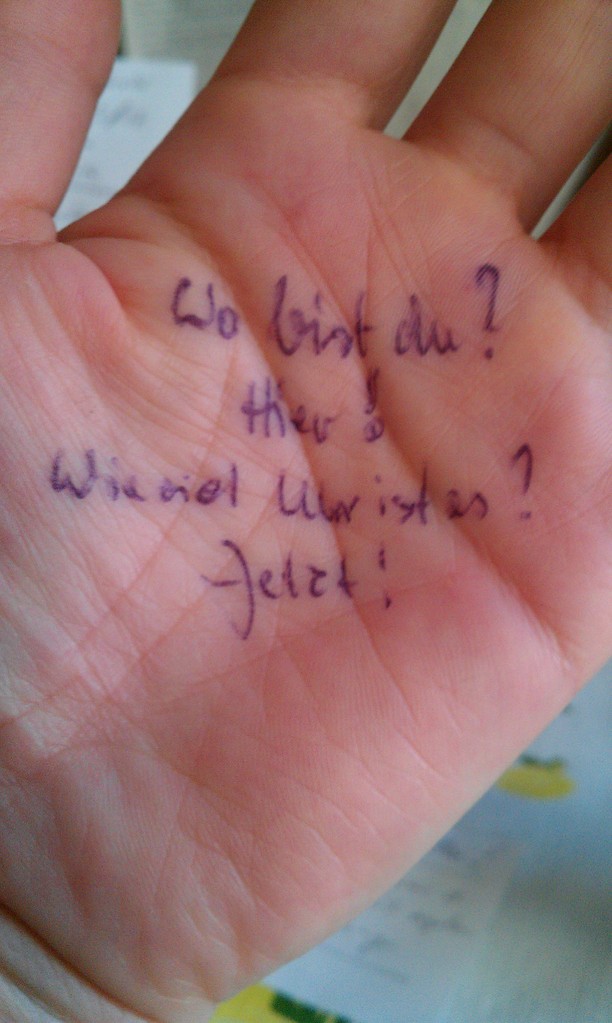 Wo bist du?
Hier!
Wieviel Uhr ist es?
Jetzt!